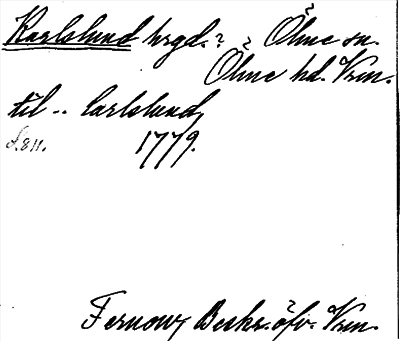 Karlslund hrgd.? Ölme sn.
Ölme hd. Vrm.
til .. Carlslund,
1779.
Fernow, Beskr. öfv. Vrm.